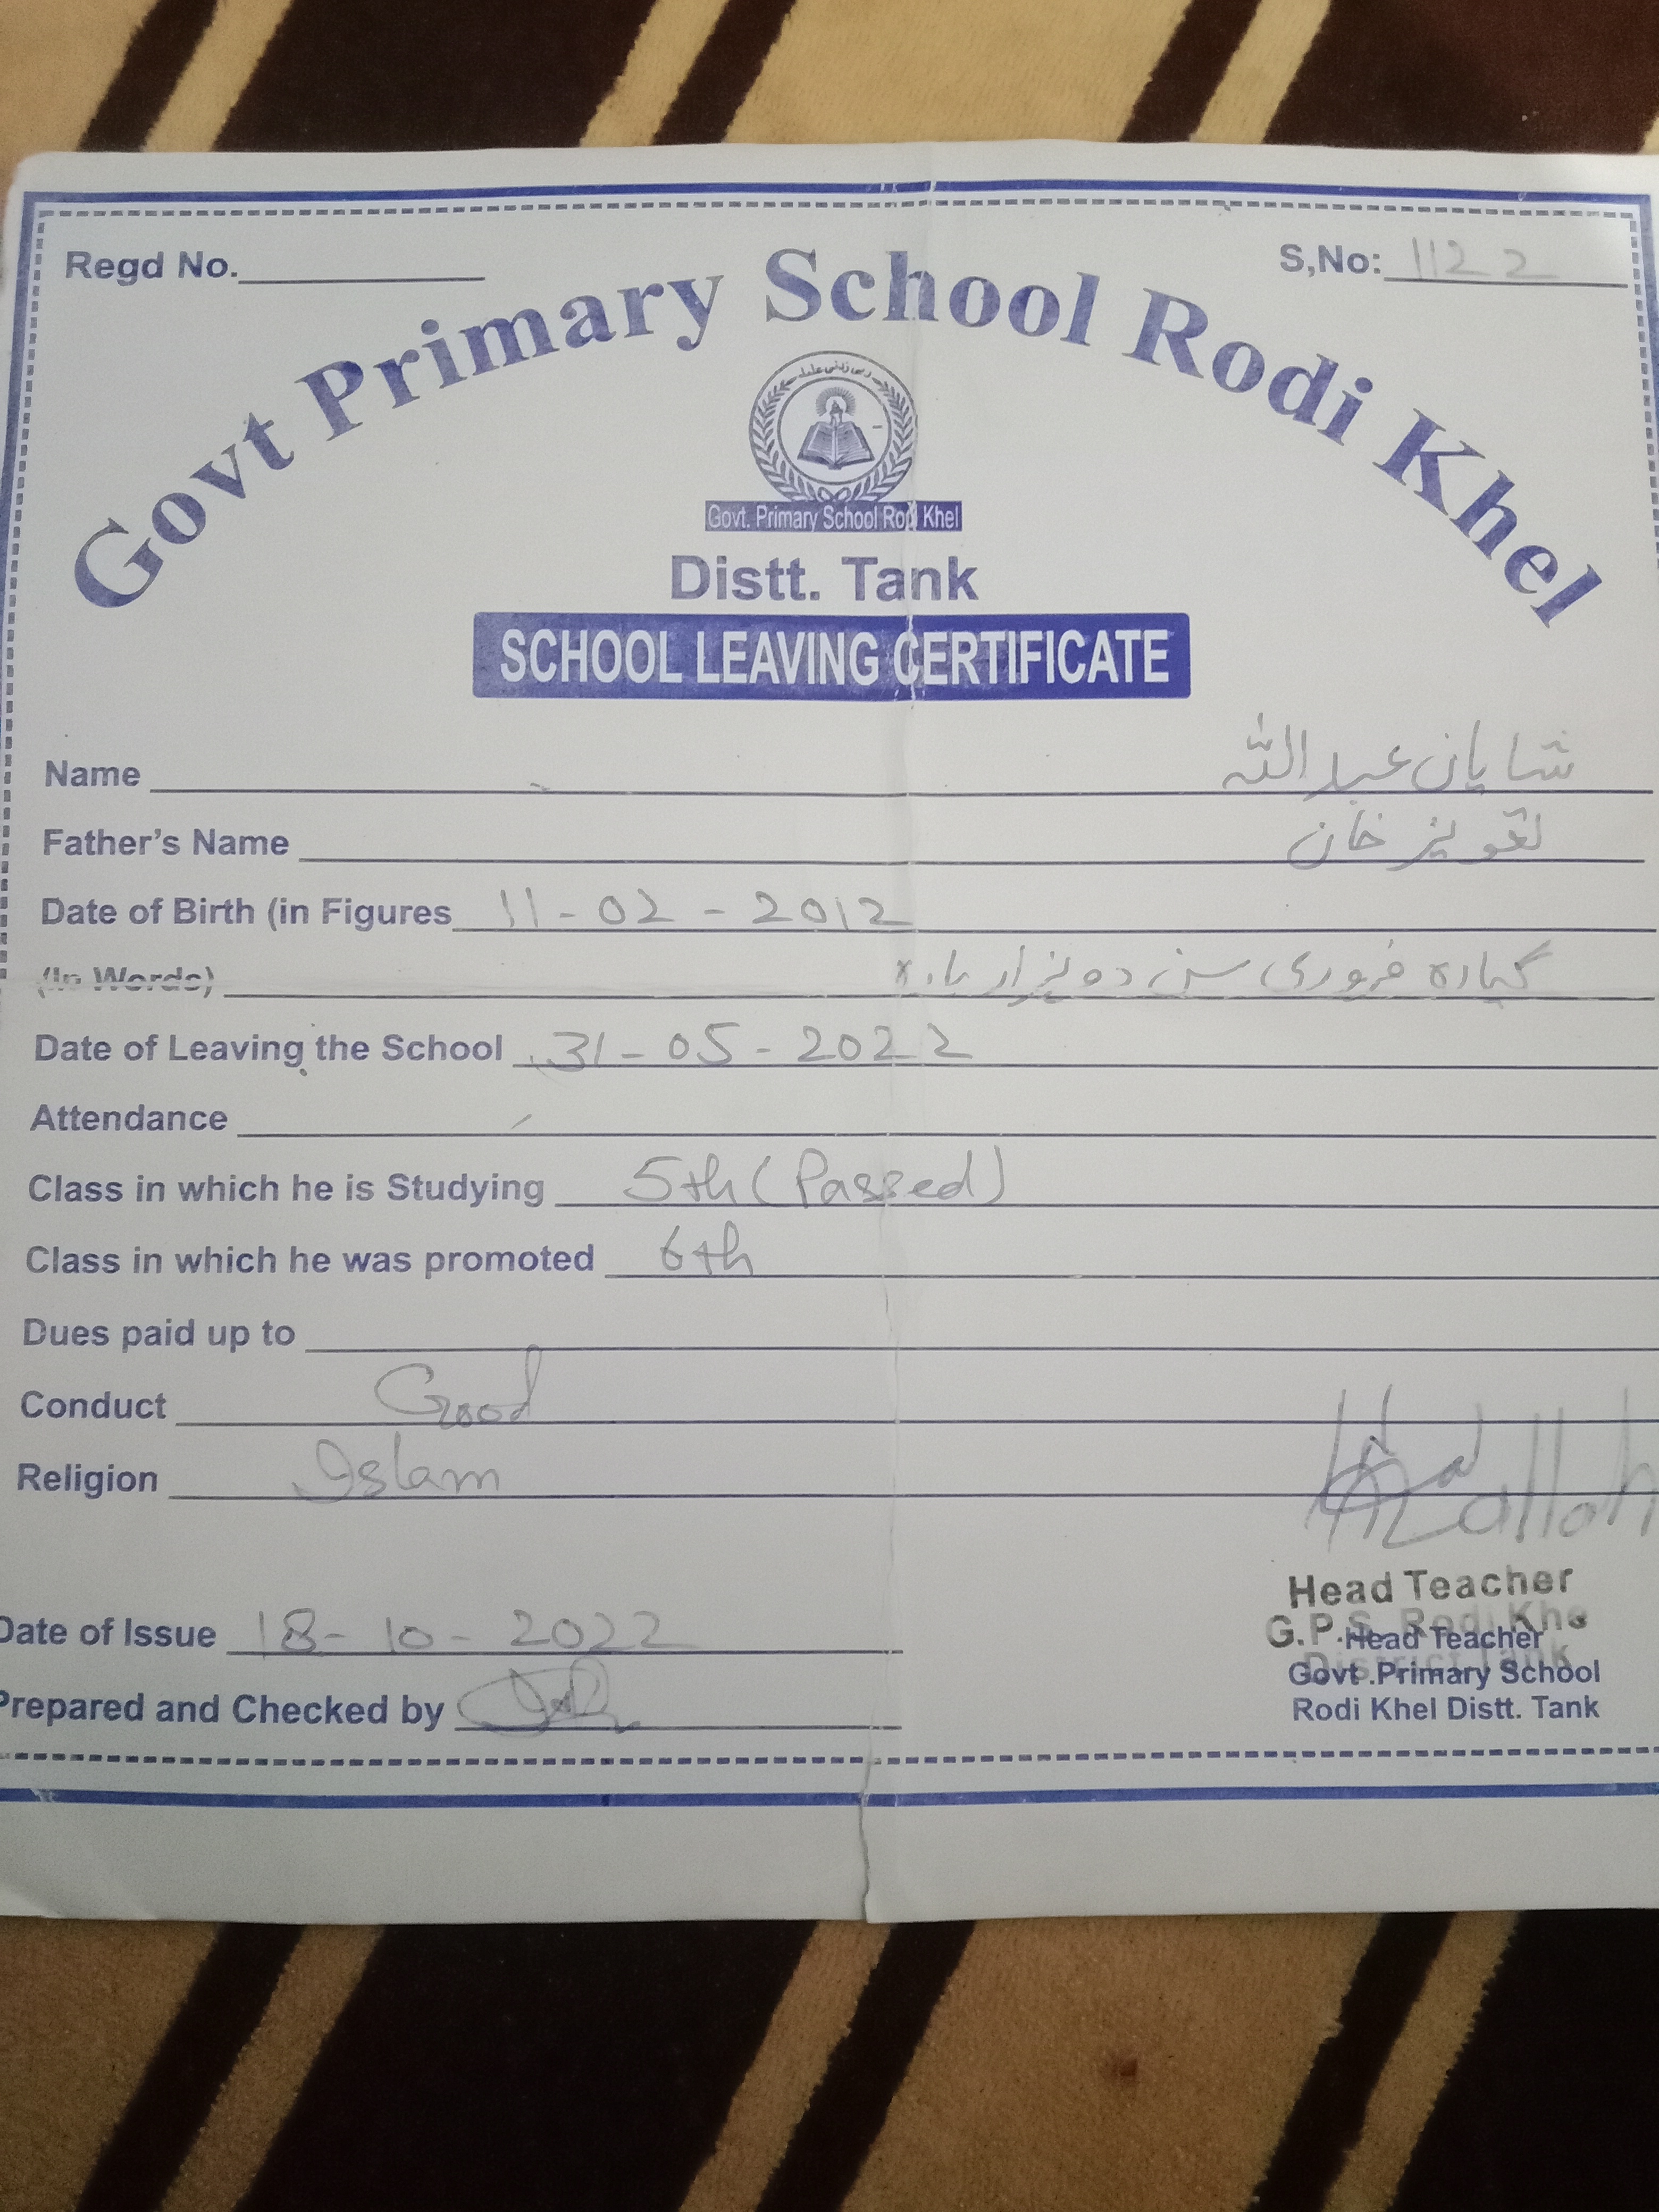 Regd No.
S,No: 1122
Govt Primary School Rodi Khel
رب زدنی علما
Govt. Primary School Rodi Khel
Distt. Tank
SCHOOL LEAVING CERTIFICATE
Name شایان عبد اللہ
Father's Name خان
Date of Birth (in Figures 11-02-2012
(In Words) گیارہ فروری سن دو ہزار بارہ
Date of Leaving the School 31-05-2022
Attendance
Class in which he is Studying 5th (Passed)
Class in which he was promoted 6th
Dues paid up to
Conduct Good
Religion Islam
Head Teacher
G.P.S. Rodi Khe
District Tank
Date of Issue 18-10-2022
Head Teacher
Govt .Primary School
Prepared and Checked by
Rodi Khel Distt. Tank